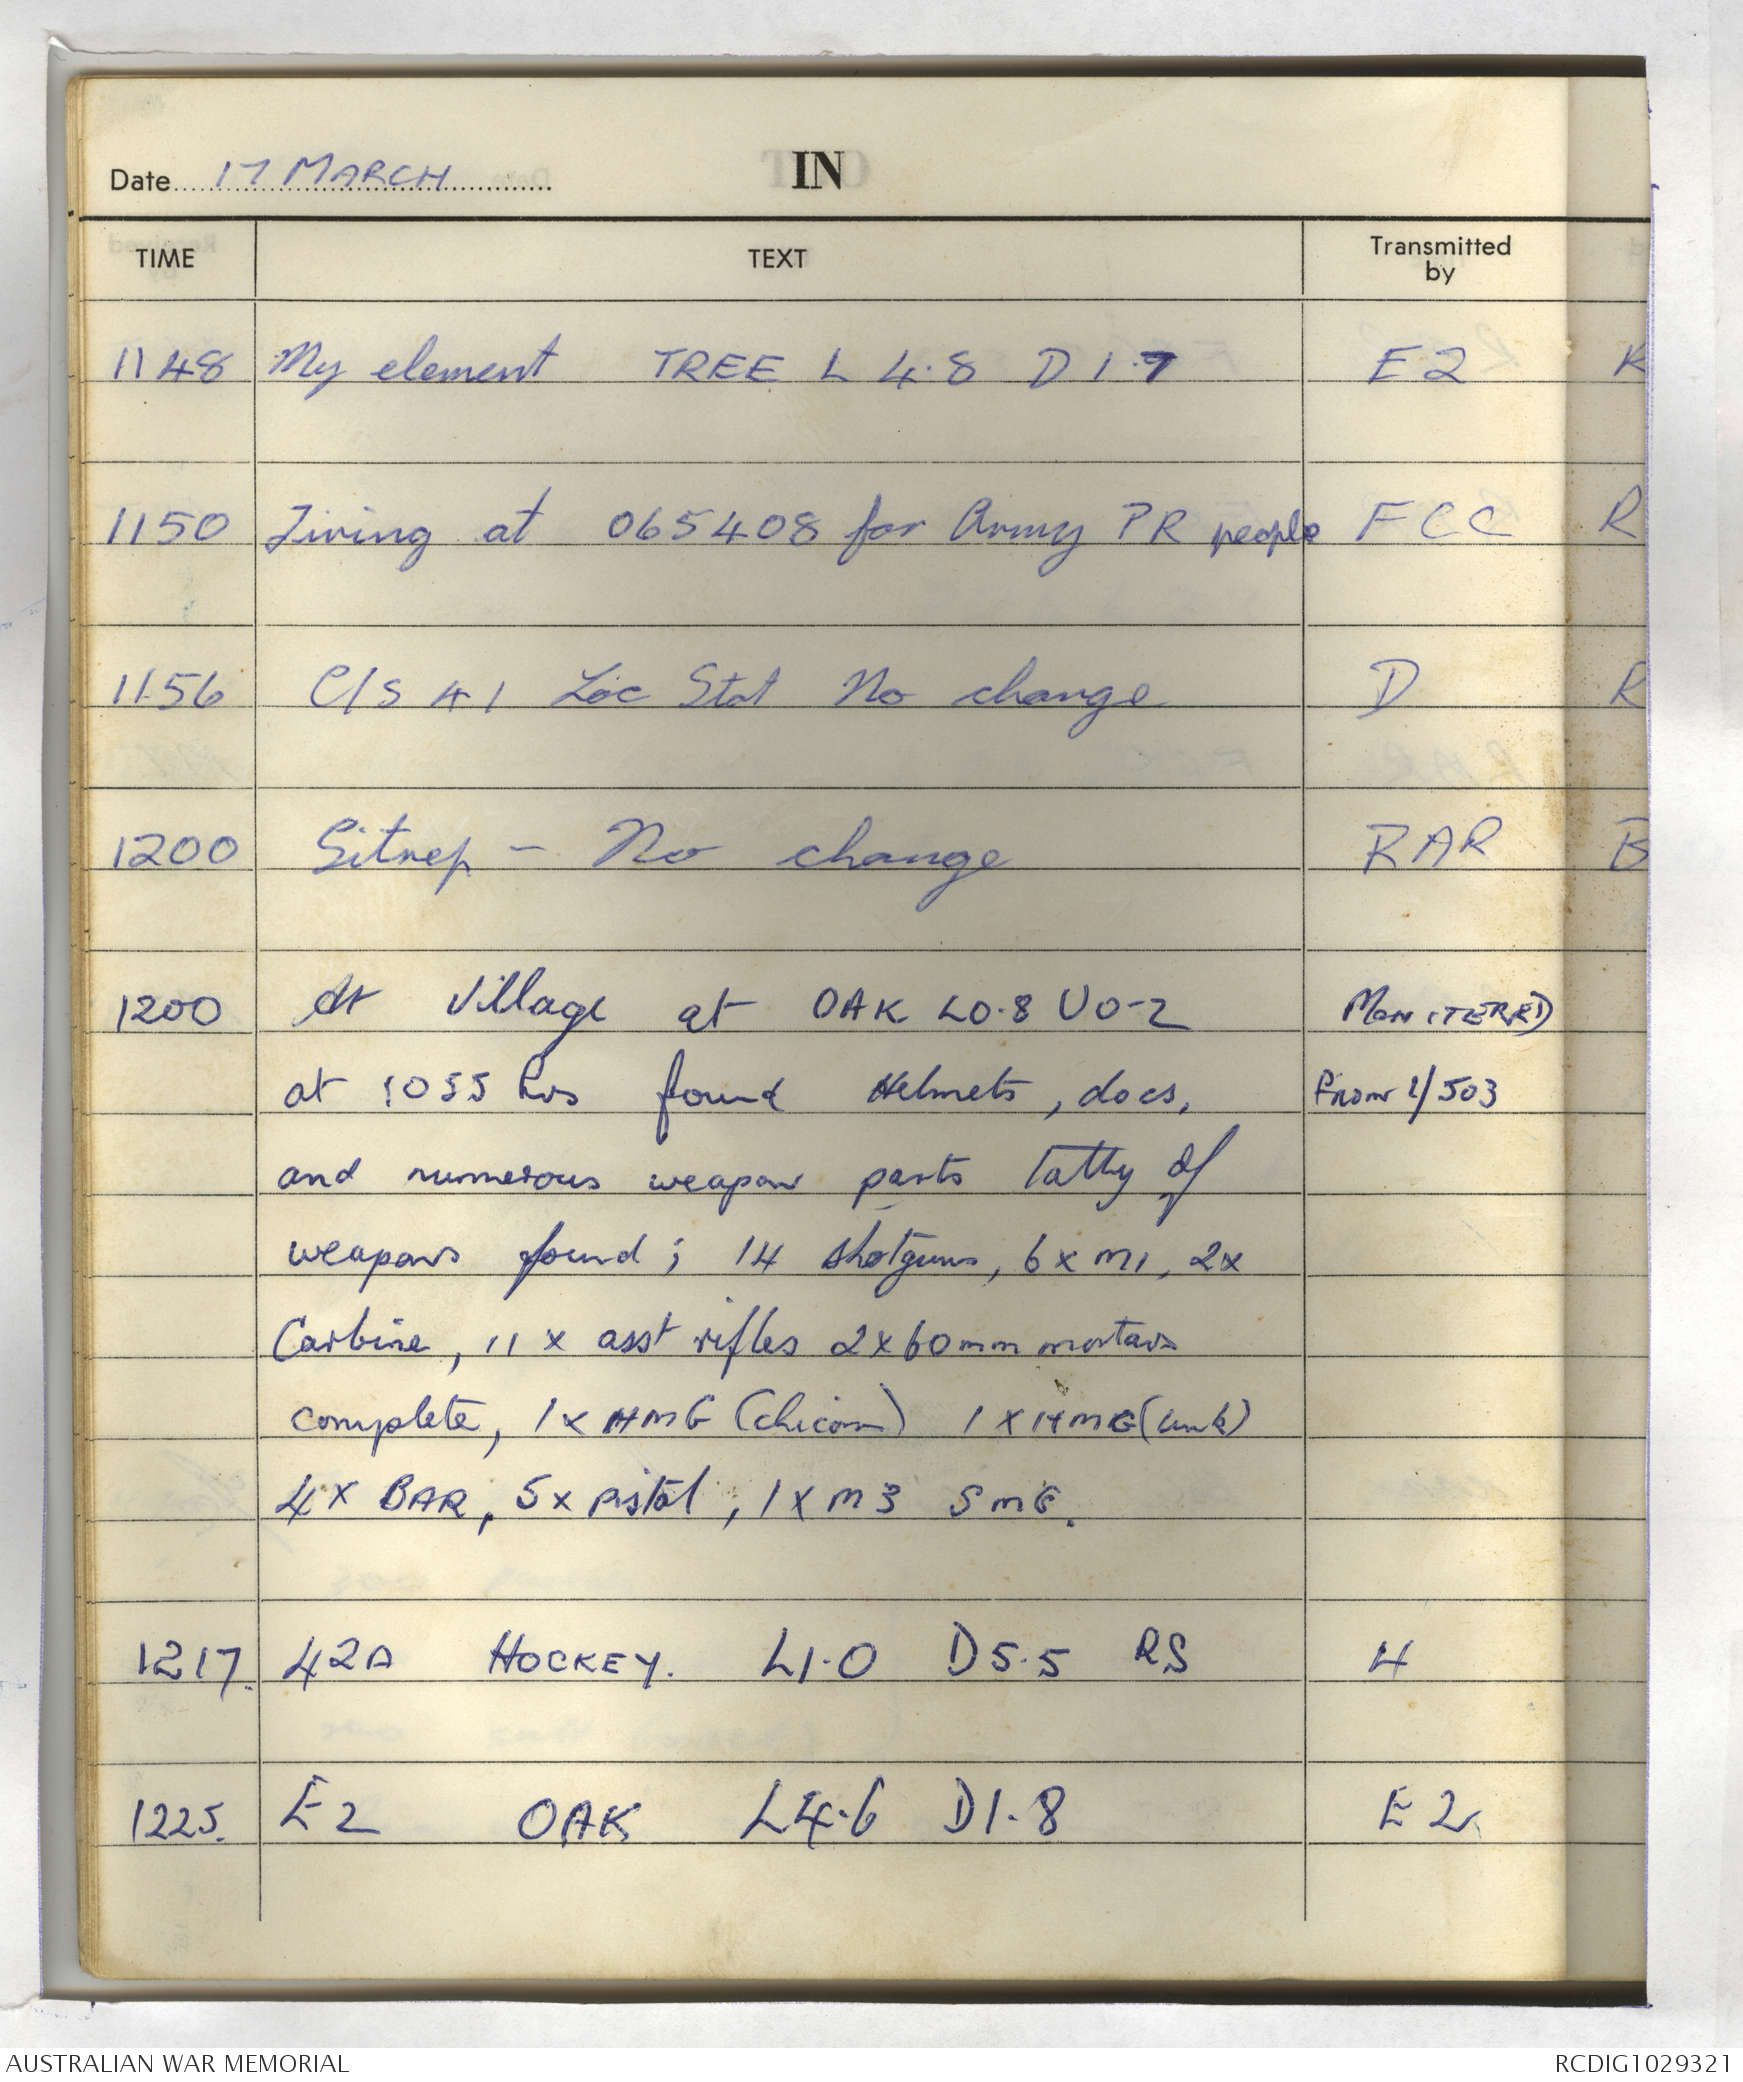 Date 17 MARCH
IN
TIME TEXT Transmitted by
1148 My element TREE L 4.8 D 1.7 E2 R
1150 Firing at 065408 for Army PR people FCC R
1156 C/S 41 Loc Stat No change D R
1200 Sitrep - No change RAR B
1200 At Village at OAK L0.8 U0-2 MONITERED
at 1055 hrs found Helmets, docs, From 1/503
and numerous weapon parts Tatty of
weapons found; 14 shotguns, 6 x M1, 2x
Carbine, 11 x asst rifles 2x60mm mortars
complete, 1x HMG (chicom) 1 x HMG (unk)
4x BAR, 5x pistol, 1 x M3 SMG.
1217. 42A HOCKEY. L1.0 D5.5 RS 4
1225. E2 OAK L4.6 D1.8 E2
AUSTRALIAN WAR MEMORIAL RCDIG1029321